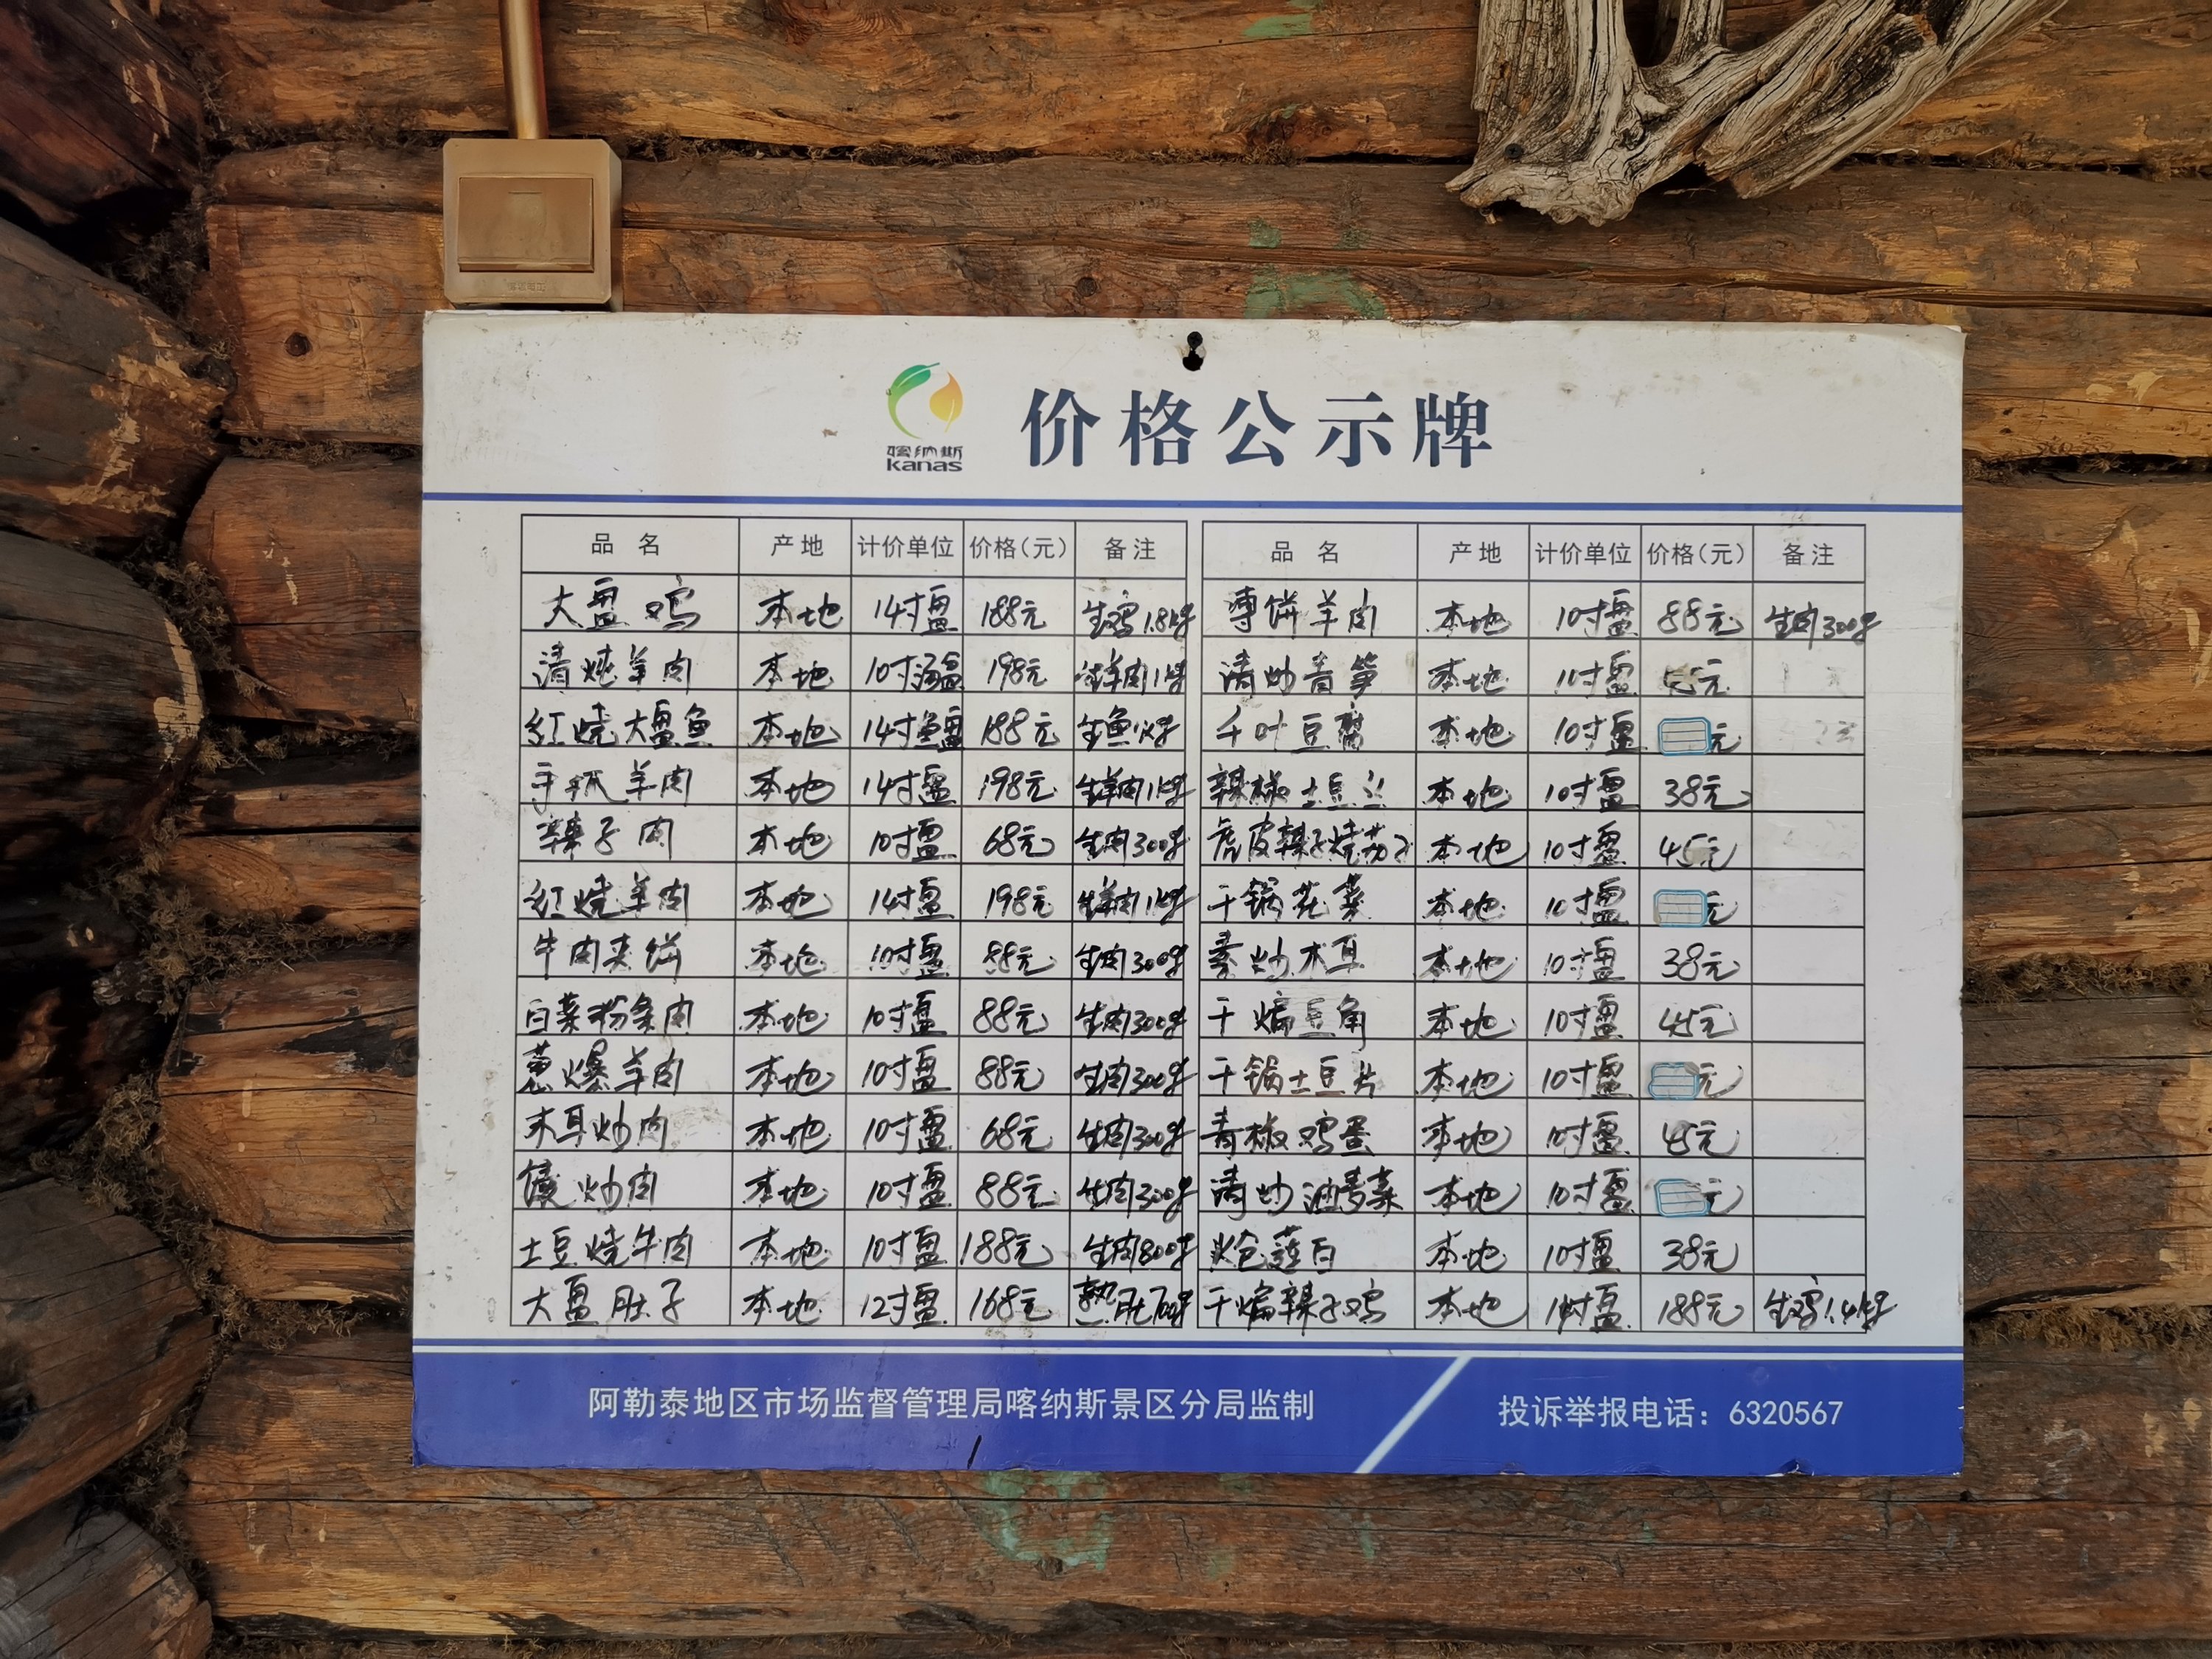 喀纳斯
kanas
价格公示牌
品名 产地 计价单位 价格(元) 备注 品名 产地 计价单位 价格(元) 备注
大盘鸡 本地 14寸盘 188元 生鸡1.8kg 薄饼羊肉 本地 10寸盘 88元 生肉300g
清炖羊肉 本地 10寸汤盆 198元 生羊肉1kg 清炒青笋 本地 11寸盘 元
红烧大盘鱼 本地 14寸鱼盘 188元 生鱼 千叶豆腐 本地 10寸盘 元
手抓羊肉 本地 14寸盘 198元 生羊肉1kg 辣椒土豆丝 本地 10寸盘 38元
辣子肉 本地 10寸盘 68元 生肉300g 虎皮辣子烧茄子 本地 10寸盘 45元
红烧羊肉 本地 14寸盘 198元 生羊肉1kg 干锅花菜 本地 10寸盘 元
牛肉夹饼 本地 10寸盘 88元 生肉300g 素炒木耳 本地 10寸盘 38元
白菜粉条肉 本地 10寸盘 88元 生肉300g 干煸豆角 本地 10寸盘 45元
葱爆羊肉 本地 10寸盘 88元 生肉300g 干锅土豆片 本地 10寸盘 元
木耳炒肉 本地 10寸盘 68元 生肉300g 青椒鸡蛋 本地 10寸盘 45元
馕炒肉 本地 10寸盘 88元 生肉300g 清炒油麦菜 本地 10寸盘 元
土豆烧牛肉 本地 10寸盘 188元 生肉800g 炝莲白 本地 10寸盘 38元
大盘肚子 本地 12寸盘 168元 熟肚700g 干煸辣子鸡 本地 14寸盘 188元 生鸡1.4kg
阿勒泰地区市场监督管理局喀纳斯景区分局监制 投诉举报电话：6320567